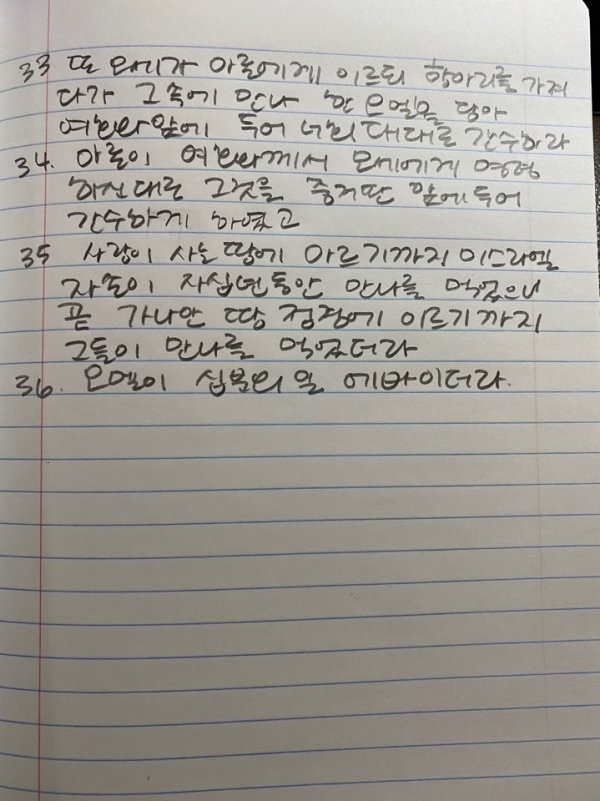 33 또 모세가 아론에게 이르되 항아리를 가져
다가 그 속에 만나 한 오멜을 담아
여호와 앞에 두어 너희 대대로 간수하라
34. 아론이 여호와께서 모세에게 명령
하신대로 그것을 증거판 앞에 두어
간수하게 하였고
35 사람이 사는 땅에 이르기까지 이스라엘
자손이 사십년 동안 만나를 먹었으니
곧 가나안 땅 접경에 이르기까지
그들이 만나를 먹었더라
36. 오멜이 십분의 일 에바이더라.